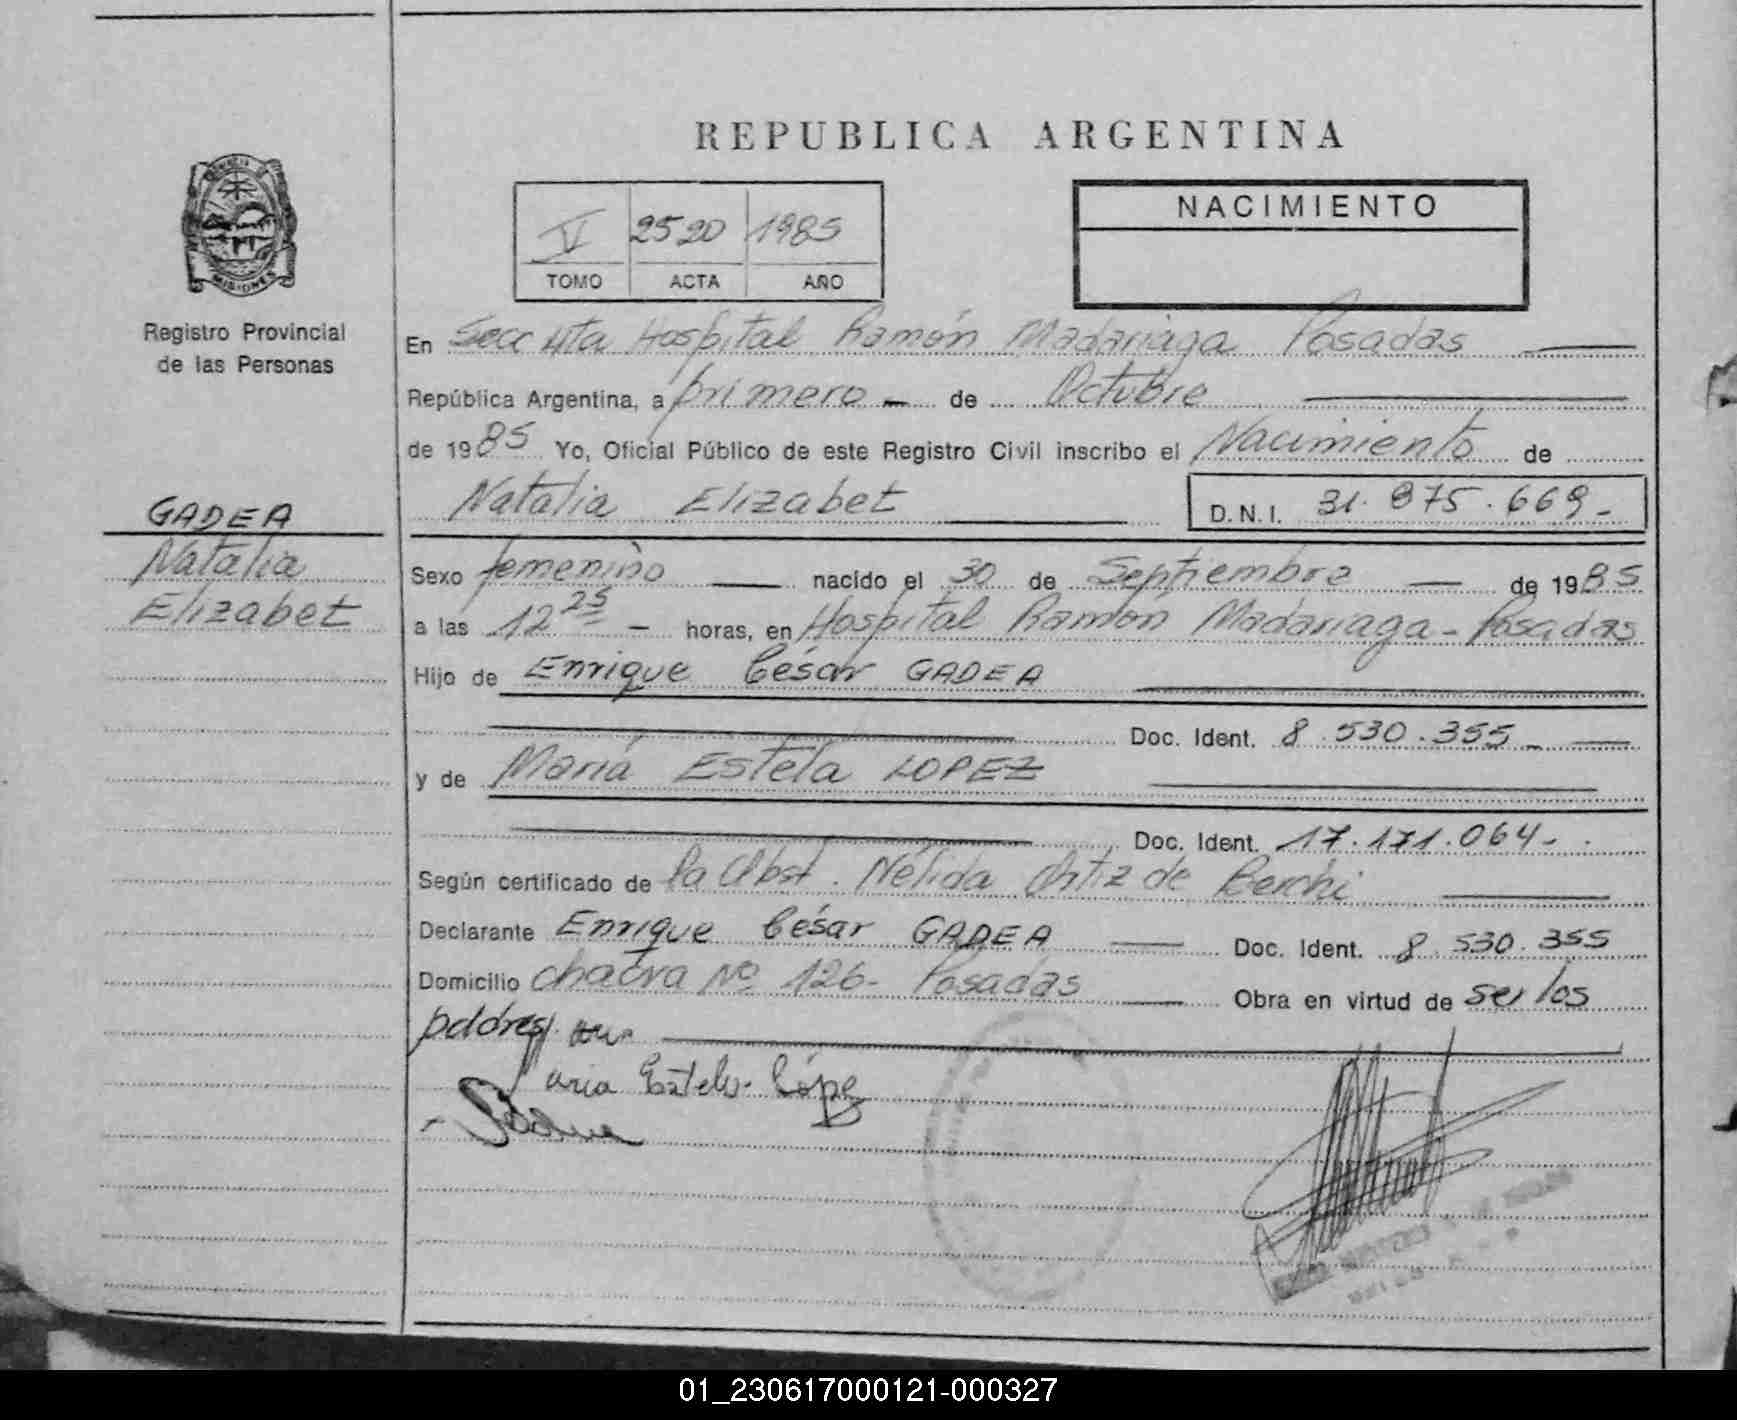 REPUBLICA ARGENTINA
MISIONES
Registro Provincial
de las Personas
V 2520 1985
TOMO ACTA AÑO
NACIMIENTO
En Secc 4ta Hospital Ramón Madariaga Posadas
República Argentina, a primero de Octubre
de 1985 Yo, Oficial Público de este Registro Civil inscribo el Nacimiento de
Natalia Elizabet D.N.I. 31.875.669-
GADEA
Natalia
Elizabet
Sexo femenino nacido el 30 de Septiembre de 1985
a las 12 25 - horas, en Hospital Ramón Madariaga - Posadas
Hijo de Enrique César GADEA
Doc. Ident. 8.530.355-
y de María Estela LOPEZ
Doc. Ident. 17.171.064-
Según certificado de la Obst. Nélida Ortiz de Berchi
Declarante Enrique César GADEA Doc. Ident. 8.530.355
Domicilio chacra Nº 126- Posadas Obra en virtud de ser los
padres
aria Estela López
01_230617000121-000327